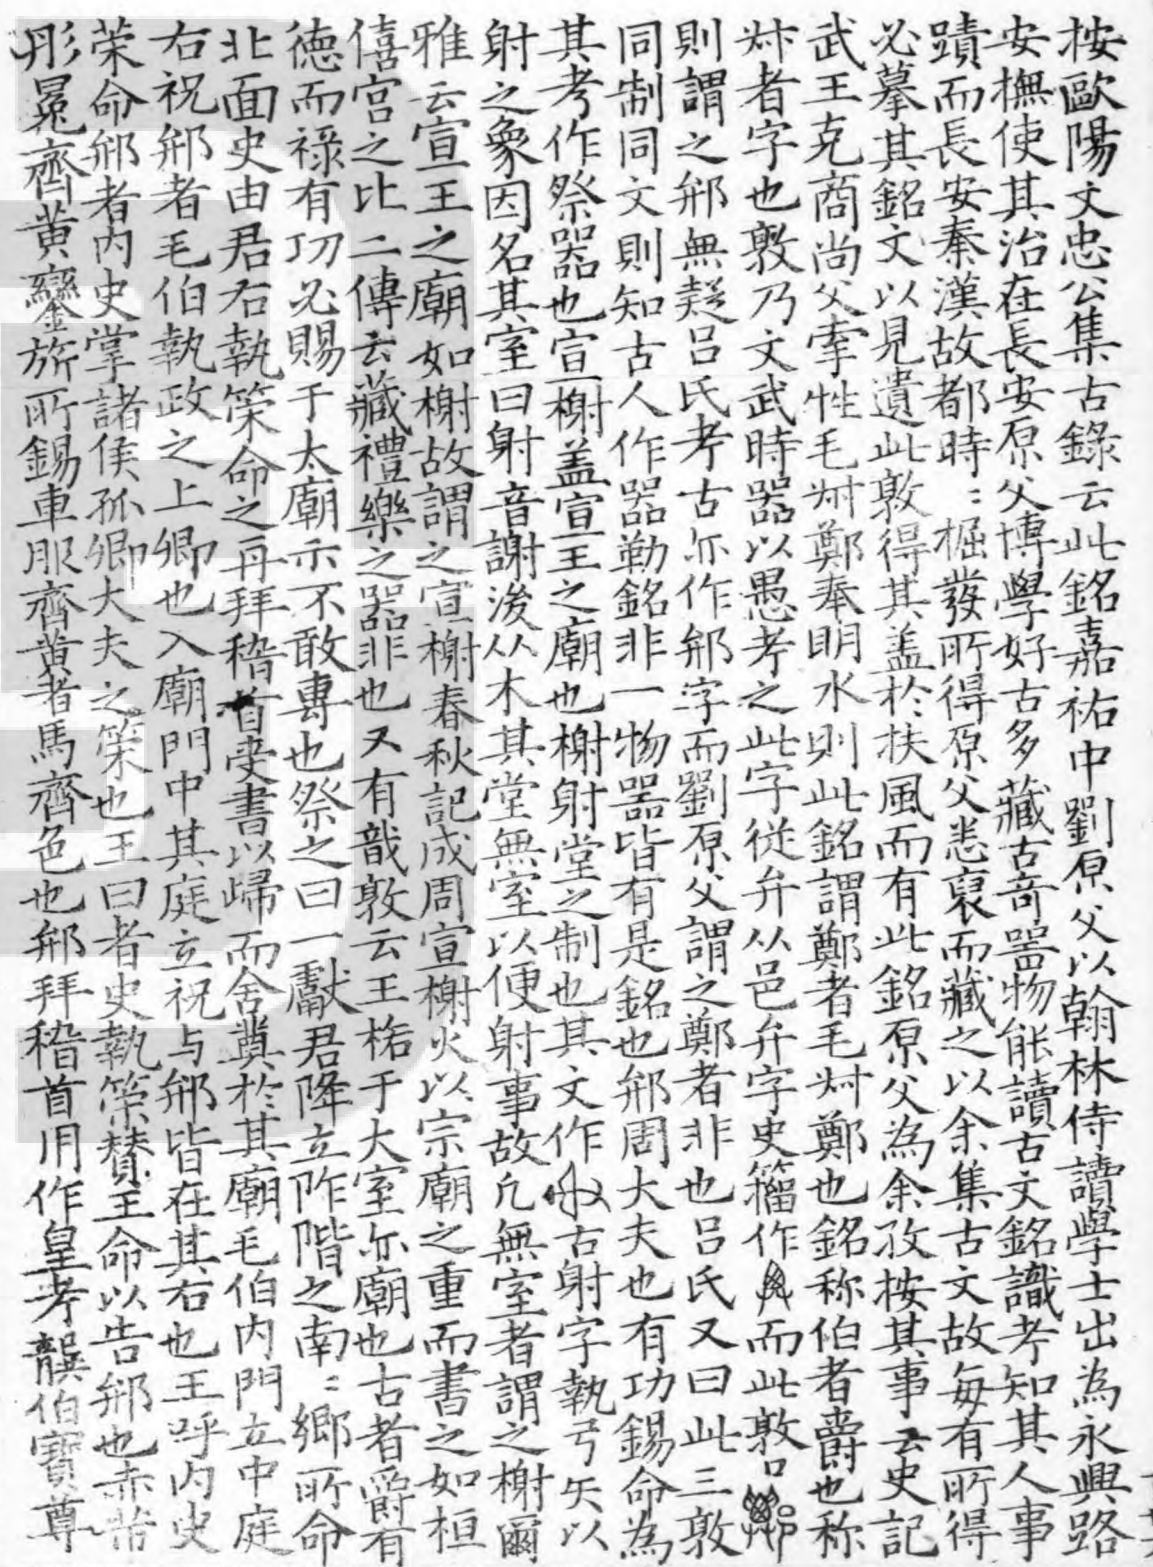 按歐陽文忠公集古錄云此銘嘉祐中劉原父以翰林侍讀學士出為永興路
安撫使其治在長安原父博學好古多藏古奇器物能讀古文銘識考知其人事
蹟而長安秦漢故都時〻掘發所得原父悉裒而藏之以余集古文故每有所得
必摹其銘文以見遺此敦得其盖於扶風而有此銘原父為余攷按其事云史記
武王克商尚父牽牲毛𠦑鄭奉明水則此銘謂鄭者毛𠦑鄭也銘称伯者爵也称
𠦑者字也敦乃文武時器以愚考之此字從弁从邑弁字史籀作而此敦
則謂之䢳無疑呂氏考古亦作䢳字而劉原父謂之鄭者非也呂氏又曰此三敦
同制同文則知古人作器勒銘非一物器皆有是銘也䢳周大夫也有功錫命為
其考作祭器也宣榭盖宣王之廟也榭射堂之制也其文作古射字執弓矢以
射之象因名其室曰射音謝後从木其堂無室以便射事故凢無室者謂之榭爾
雅云宣王之廟如榭故謂之宣榭春秋記成周宣榭火以宗廟之重而書之如桓
僖宮之比二傳云藏禮樂之器非也又有敦云王格于大室亦廟也古者爵有
德而祿有功必賜于太廟示不敢專也祭之曰一獻君降立阼階之南〻鄉所命
北面史由君右執策命之再拜稽首受書以歸而舍奠於其廟毛伯内門立中庭
右祝䢳者毛伯執政之上卿也入廟門中其庭立祝与䢳皆在其右也王呼内史
策命䢳者内史掌諸侯孤卿大夫之策也王曰者史執策贊王命以告䢳也赤芾
彤冕齊黄鑾旂所錫車服齊黄者馬齊色也䢳拜稽首用作皇考龔伯寶尊